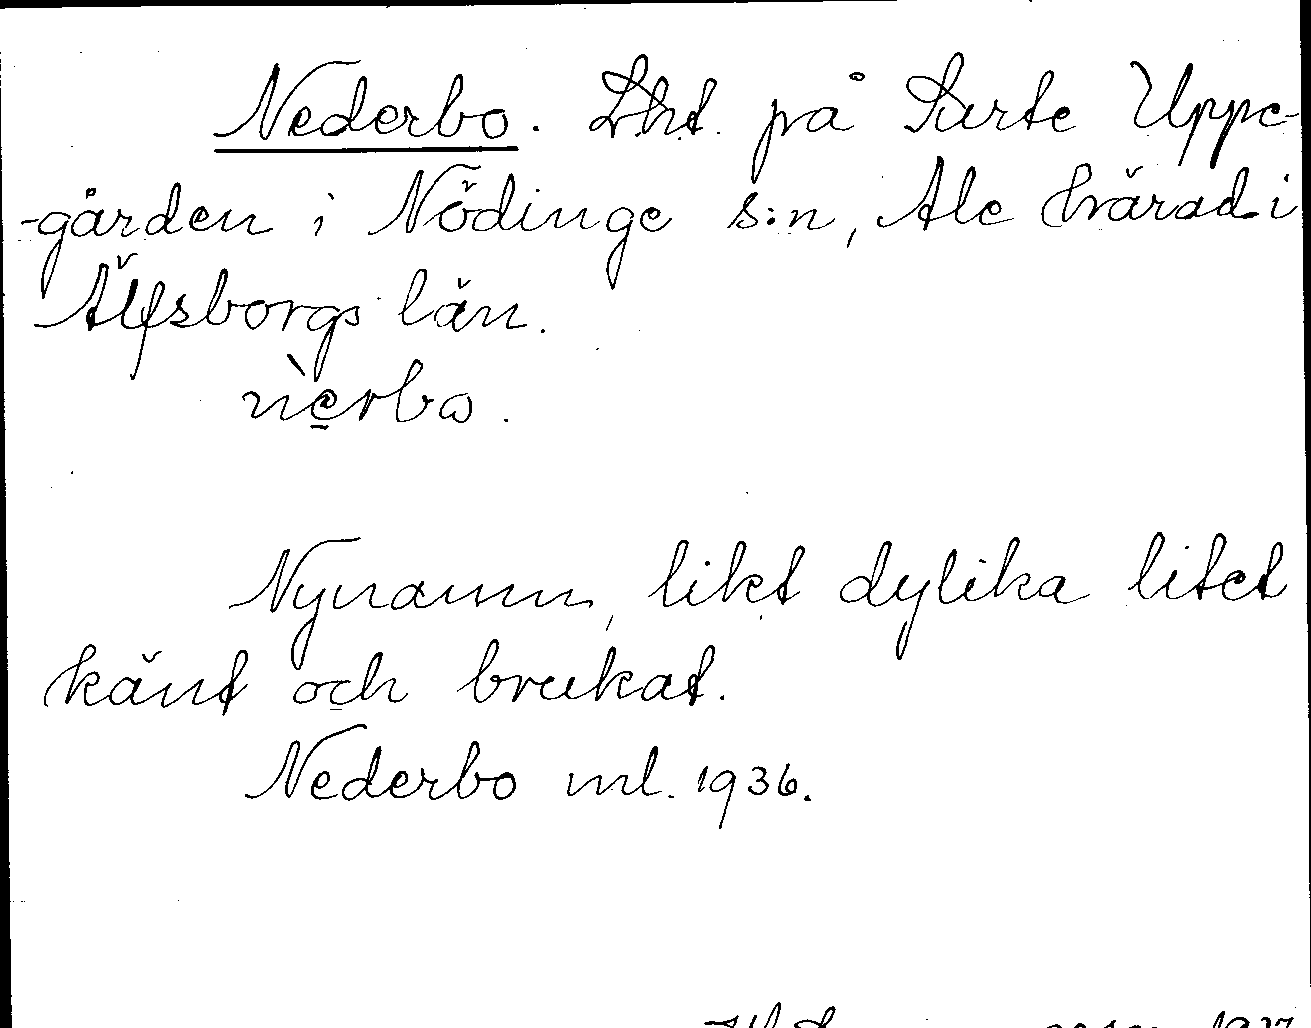 Nederbo. Lht. på Surte Uppe-
-gården i Nödinge s:n, Ale härad i
Älfsborgs län.
nèrbω.
Nynamn, likt dylika litet
känt och brukat.
Nederbo ml. 1936.